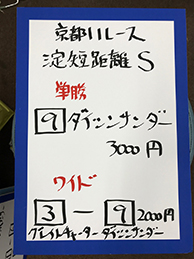 京都11レース
淀短距離S
単勝
9 ダイシンサンダー
3000円
ワイド
3 ー 9 2000円
グレイルチャーター ダイシンサンダー